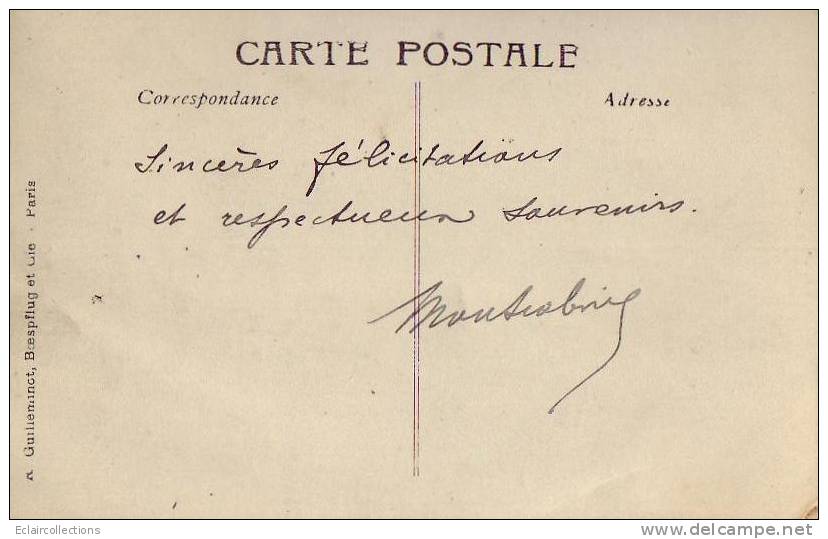 CARTE POSTALE
Correspondance Adresse
Sincères félicitations
et respectueux souvenirs.
A. Guilleminot, Bœspflug et Cie - Paris
Eclaircollections
http://www.delcampe.net